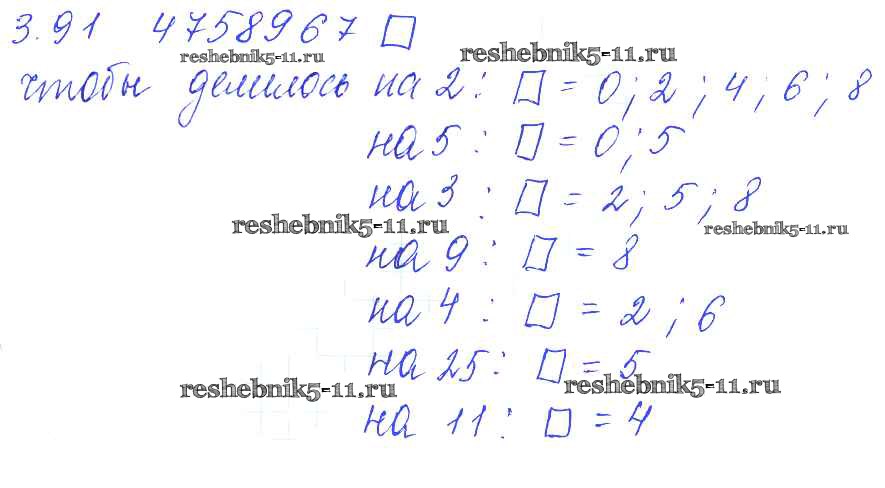 3.91 4758967□
reshebnik5-11.ru reshebnik5-11.ru
чтобы делилось на 2: □ = 0; 2; 4; 6; 8
на 5: □ = 0; 5
на 3: □ = 2; 5; 8
reshebnik5-11.ru reshebnik5-11.ru
на 9: □ = 8
на 4: □ = 2; 6
на 25: □ = 5
reshebnik5-11.ru reshebnik5-11.ru
на 11: □ = 4